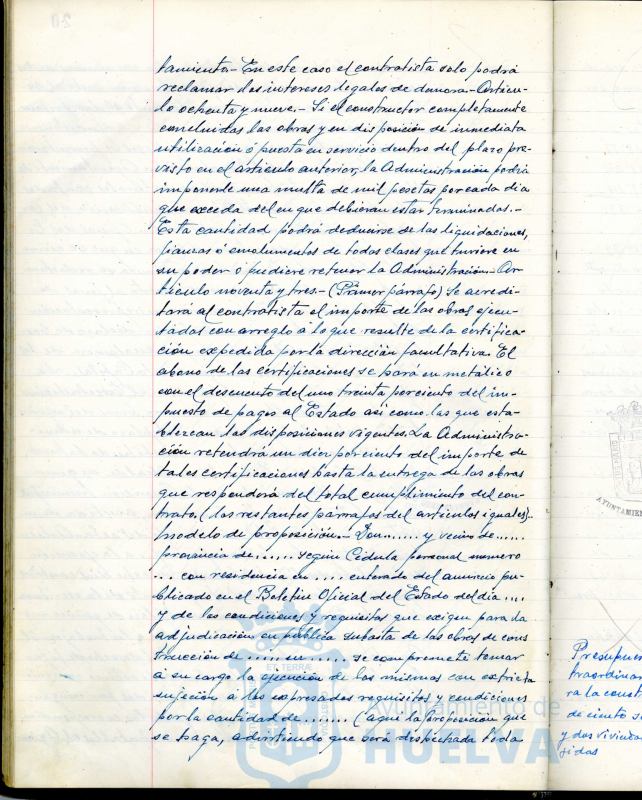 tamiento.- En este caso el contratista solo podrá
reclamar los intereses legales de demora.- Articu-
lo ochenta y nueve.- Si el constructor completamente
concluidas las obras y en disposición de inmediata
utilización ó puesta en servicio dentro del plazo pre-
visto en el articulo anterior, la Administración podrá
imponerle una multa de mil pesetas por cada dia
que exceda del en que debieran estar terminadas.-
Esta cantidad podrá deducirse de las liquidaciones,
fianzas ó emolumentos de todas clases que tuviere en
su poder ó pudiere retener la Administración.- Ar-
ticulo noventa y tres.- (Primer párrafo) Se acredi-
tará al contratista el importe de las obras ejecu-
tadas con arreglo á lo que resulte de la certifica-
ción expedida por la dirección facultativa. El
abono de las certificaciones se hará en metálico
con el descuento del uno treinta por ciento del im-
puesto de pagos al Estado asi como las que esta-
blezcan las disposiciones vigentes. La Administra-
ción retendrá un diez por ciento del importe de
tales certificaciones hasta la entrega de las obras
que responderá del total cumplimiento del con-
trato. (los restantes párrafos del articulo iguales).-
Modelo de proposición.- Don...... y vecino de......
provincia de...... según Cédula personal numero
... con residencia en .... enterado del anuncio pu-
blicado en el Boletin Oficial del Estado del dia ....
y de las condiciones y requisitos que exigen para la
adjudicación en pública subasta de las obras de cons
trucción de ...... en ...... se compromete tomar
á su cargo la ejecución de las mismas con estricta
sujeción á los expresados requisitos y condiciones
por la cantidad de ....... (aqui la proposición que
se haga, advirtiendo que será desechada toda
Presupues
traordinar
ra la const
de ciento s
y dos vivienda
gidas
AYUNTAMIEN
Ayuntamiento de
HUELVA